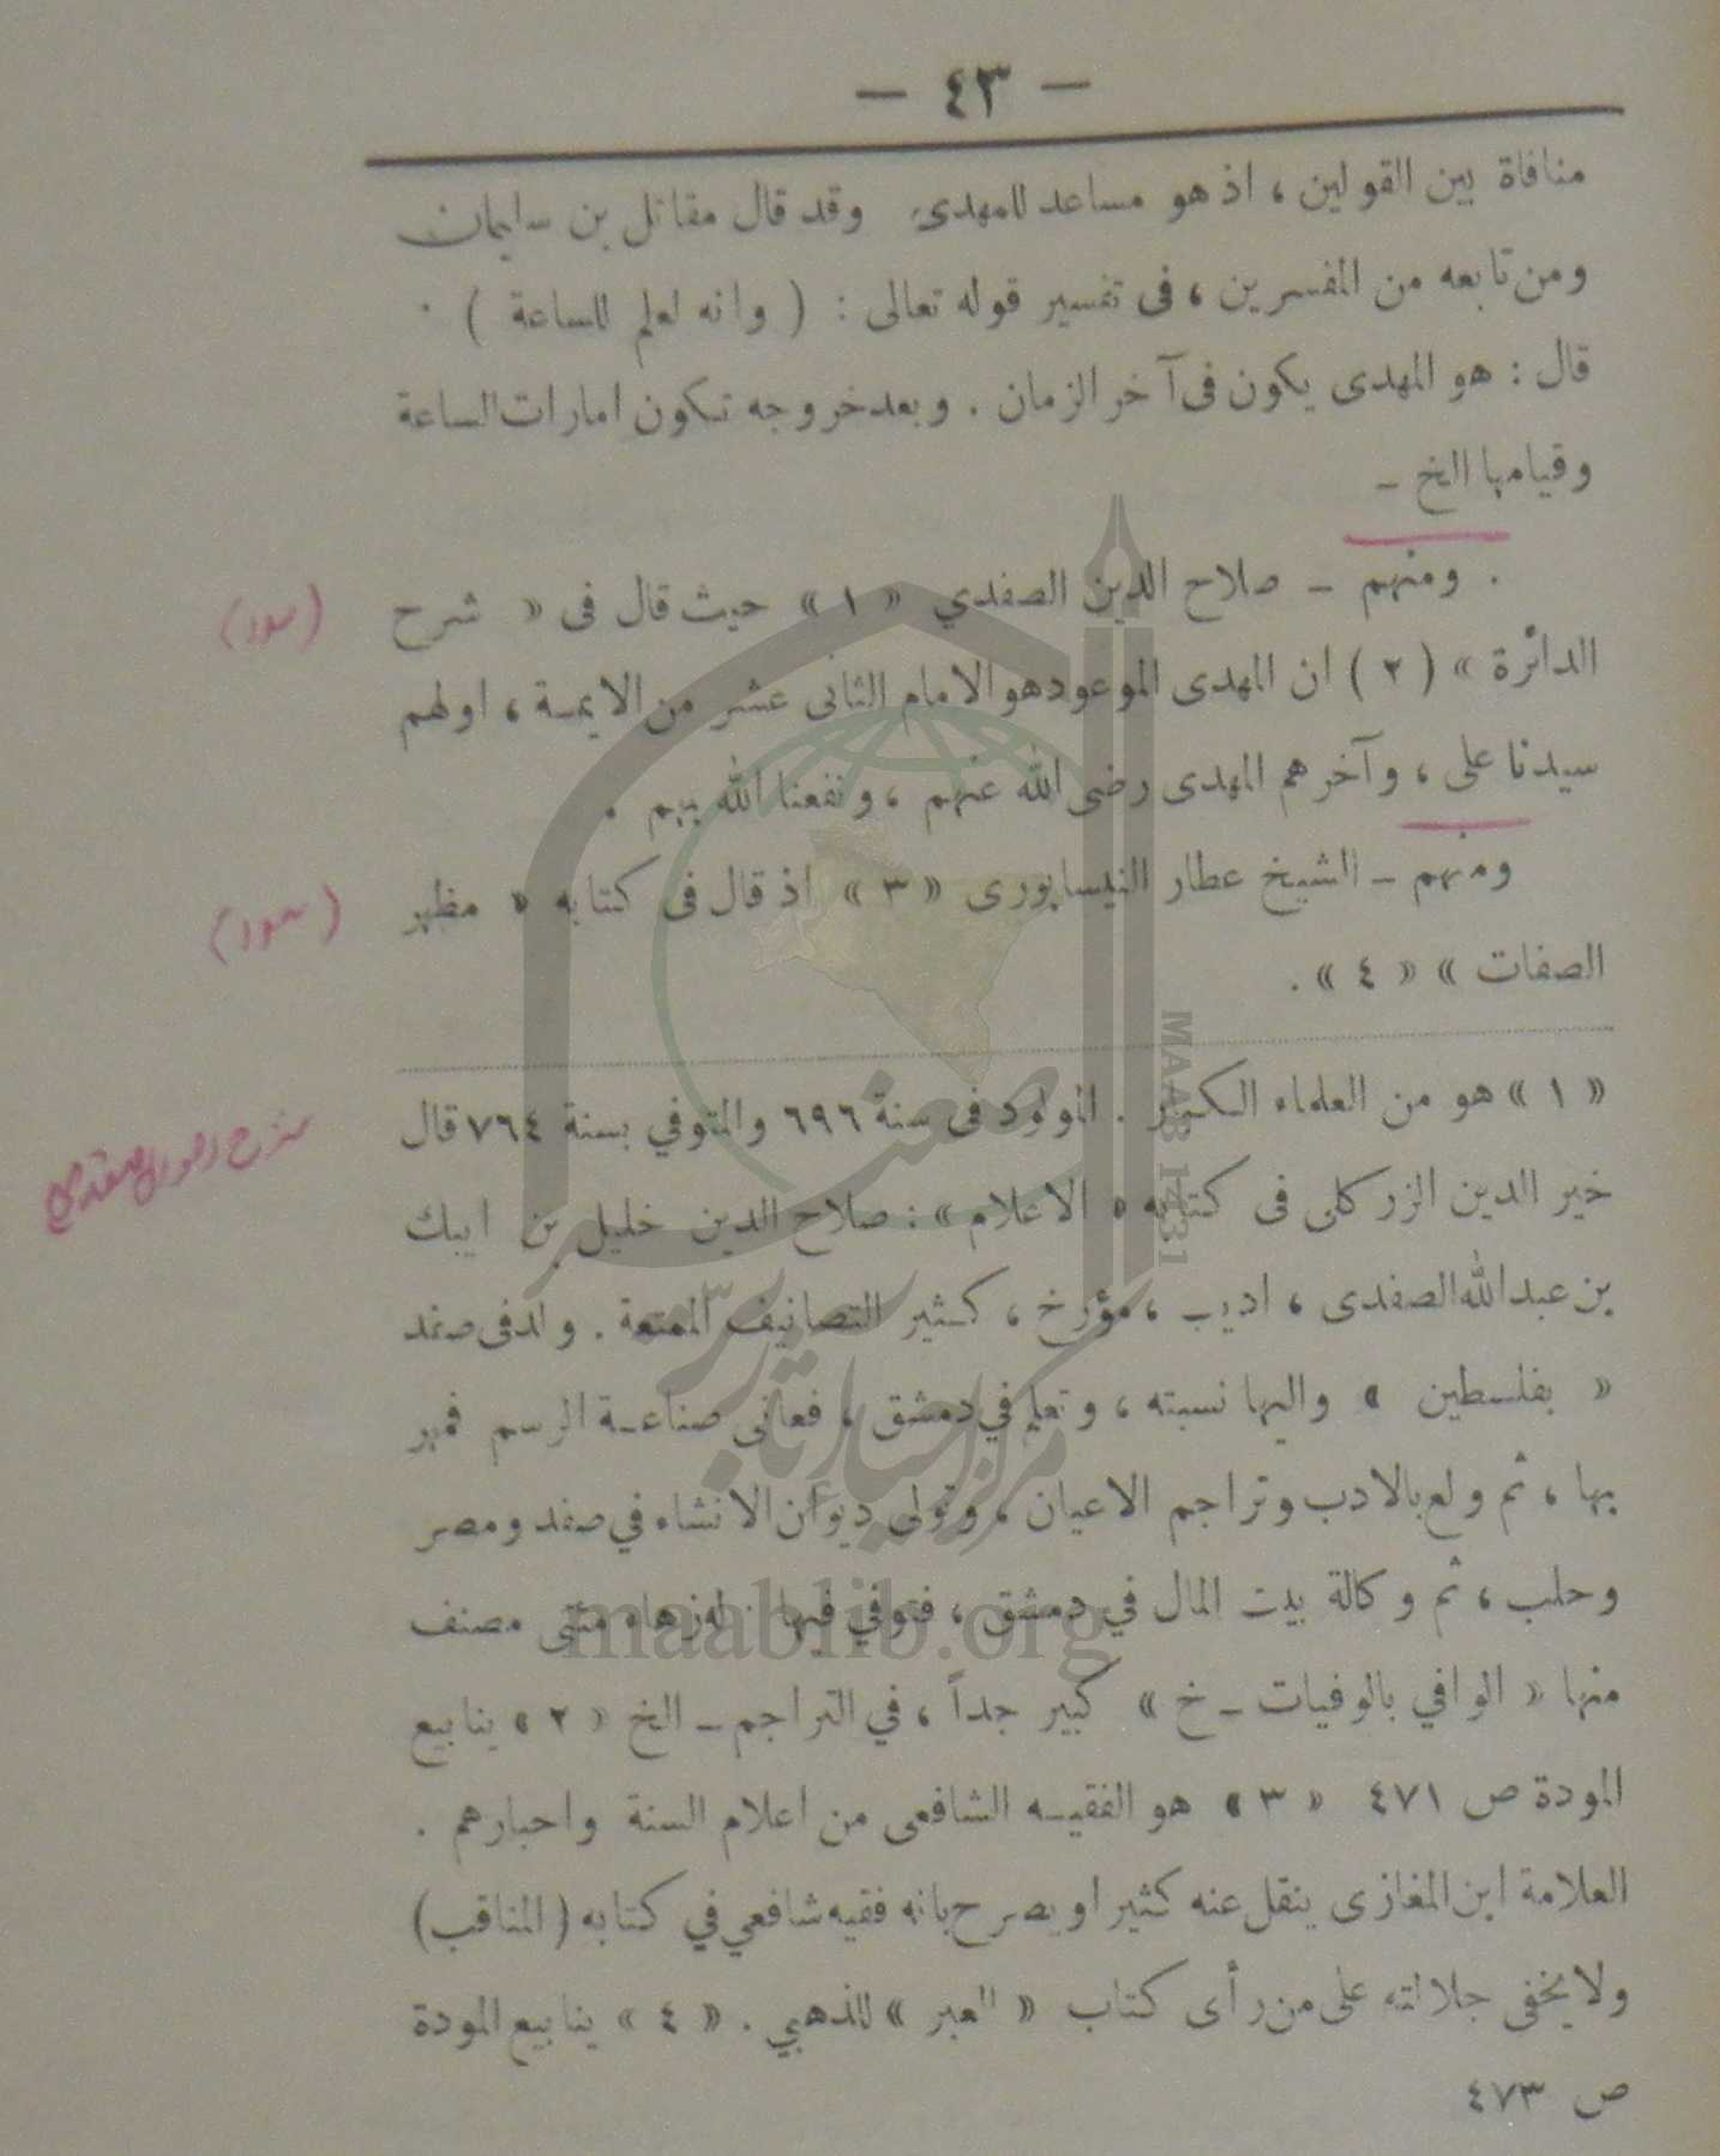 — ٤٣ —
منافاة بين القولين ، اذ هو مساعد للمهدى. وقد قال مقاتل بن سليمان
ومن تابعه من المفسرين ، فى تفسير قوله تعالى : ( وانه لعلم للساعة ) .
قال : هو المهدى يكون فى آخر الزمان . وبعد خروجه تكون امارات الساعة
وقيامها الخ ـ
. ومنهم ـ صلاح الدين الصفدي « ١ » حيث قال فى « شرح
الدائرة » ( ٢ ) ان المهدى الموعود هو الامام الثانى عشر من الايمة ، اولهم
سيدنا على ، وآخرهم المهدى رضى الله عنهم ، ونفعنا الله بهم .
ومنهم ـ الشيخ عطار النيسابورى « ٣ » اذ قال فى كتابه « مظهر
الصفات » « ٤ » .
« ١ » هو من العلماء الكبار . المولود فى سنة ٦٩٦ والمتوفي بسنة ٧٦٤ قال
خير الدين الزركلى فى كتابه « الاعلام » : صلاح الدين خليل بن ايبك
بن عبد الله الصفدى ، اديب ، مؤرخ ، كثير التصانيف الممتعة . ولد فى صفد
« بفلسطين » واليها نسبته ، وتعلم في دمشق ، فعانى صناعة الرسم فمهر
بها ، ثم ولع بالادب وتراجم الاعيان ، وتولى ديوان الانشاء في صفد ومصر
وحلب ، ثم وكالة بيت المال في دمشق ، فتوفي فيها . له زهاء مئتى مصنف
منها « الوافي بالوفيات ـ خ » كبير جداً ، في التراجم ـ الخ « ٢ » ينابيع
المودة ص ٤٧١ « ٣ » هو الفقيه الشافعى من اعلام السنة واحبارهم .
العلامة ابن المغازى ينقل عنه كثيرا ويصرح بانه فقيه شافعي في كتابه ( المناقب )
ولا يخفى جلالته على من رأى كتاب « العبر » للذهبي . « ٤ » ينابيع المودة
ص ٤٧٣
MAAB 1431
مركز احياء
maablib.org